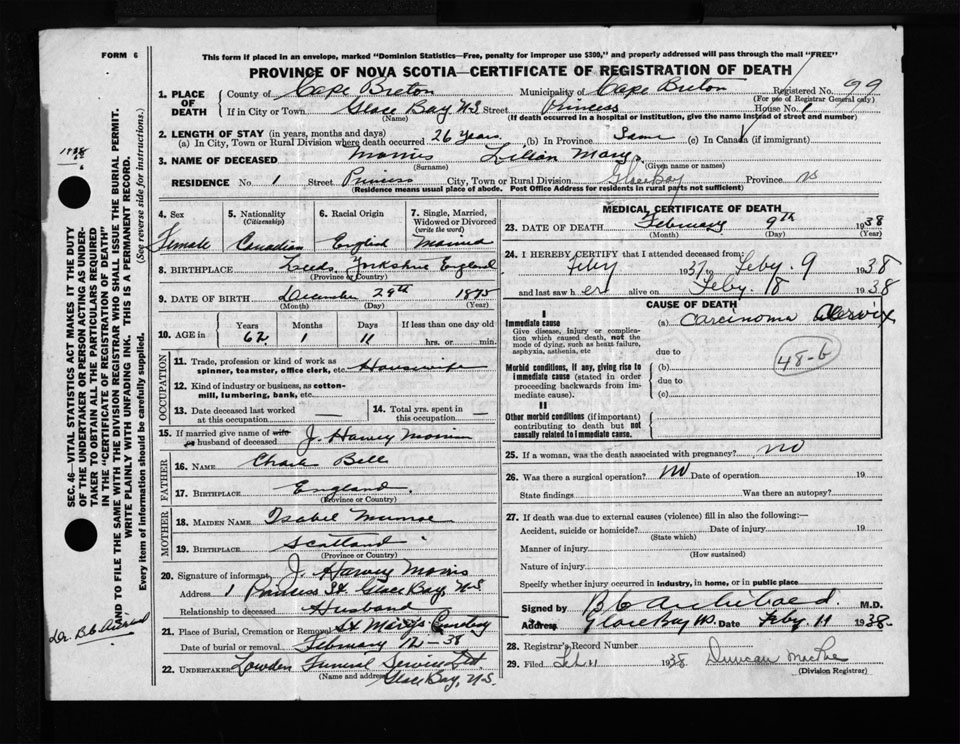 FORM 6
This form if placed in an envelope, marked "Dominion Statistics—Free, penalty for improper use $300," and properly addressed will pass through the mail "FREE"
PROVINCE OF NOVA SCOTIA—CERTIFICATE OF REGISTRATION OF DEATH
1. PLACE OF DEATH
County of Cape Breton Municipality of Cape Breton Registered No. 99
(For use of Registrar General only)
If in City or Town Glace Bay NS Street Princess House No. 1
(Name) (If death occurred in a hospital or institution, give the name instead of street and number)
2. LENGTH OF STAY (in years, months and days)
(a) In City, Town or Rural Division where death occurred 26 Years (b) In Province Same (c) In Canada (if immigrant)
3. NAME OF DECEASED Morris Lilian Mary
(Surname) (Given name or names)
RESIDENCE No 1 Street Princess City, Town or Rural Division Glace Bay Province NS
(Residence means usual place of abode. Post Office Address for residents in rural parts not sufficient)
4. Sex Female
5. Nationality (Citizenship) Canadian
6. Racial Origin English
7. Single, Married, Widowed or Divorced (write the word) Married
8. BIRTHPLACE Leeds, Yorkshire England
(Province or Country)
9. DATE OF BIRTH December 29th 1875
(Month) (Day) (Year)
10. AGE in Years 62 Months 1 Days 11 If less than one day old hrs. or min.
OCCUPATION
11. Trade, profession or kind of work as spinner, teamster, office clerk, etc. Housewife
12. Kind of industry or business, as cotton-mill, lumbering, bank, etc.
13. Date deceased last worked at this occupation —
14. Total yrs. spent in this occupation —
15. If married give name of wife or husband of deceased J. Harvey Morris
FATHER
16. NAME Charles Bell
17. BIRTHPLACE England
(Province or Country)
MOTHER
18. MAIDEN NAME Isabel Munroe
19. BIRTHPLACE Scotland
(Province or Country)
20. Signature of informant J. Harvey Morris
Address 1 Princess St. Glace Bay, N.S.
Relationship to deceased Husband
21. Place of Burial, Cremation or Removal St Marys Cemetery
Date of burial or removal February 12-38
22. UNDERTAKER Lowden Funeral Service Ltd.
(Name and address) Glace Bay, N.S.
MEDICAL CERTIFICATE OF DEATH
23. DATE OF DEATH February 9th 1938
(Month) (Day) (Year)
24. I HEREBY CERTIFY that I attended deceased from:
Feby 1937 to Feby. 9 1938
and last saw her alive on Feby. 18 1938
CAUSE OF DEATH
I
Immediate cause
Give disease, injury or complication which caused death, not the mode of dying, such as heart failure, asphyxia, asthenia, etc
(a) Carcinoma Cervix
48-b
due to
Morbid conditions, if any, giving rise to immediate cause (stated in order proceeding backwards from immediate cause).
(b)
due to
(c)
II
Other morbid conditions (if important) contributing to death but not causally related to immediate cause.
25. If a woman, was the death associated with pregnancy? no
26. Was there a surgical operation? No Date of operation 19
State findings Was there an autopsy?
27. If death was due to external causes (violence) fill in also the following:—
Accident, suicide or homicide? Date of injury 19
(State which)
Manner of injury
(How sustained)
Nature of injury
Specify whether injury occurred in industry, in home, or in public place
Signed by B C Archibald M.D.
Address Glace Bay NS. Feby 11 1938.
28. Registrar's Record Number
29. Filed Feb 11 1938 Duncan MacRae
(Division Registrar)
SEC. 46—VITAL STATISTICS ACT MAKES IT THE DUTY
OF THE UNDERTAKER OR PERSON ACTING AS UNDER-
TAKER TO OBTAIN ALL THE PARTICULARS REQUIRED
IN THE "CERTIFICATE OF REGISTRATION OF DEATH"
AND TO FILE THE SAME WITH THE DIVISION REGISTRAR WHO SHALL ISSUE THE BURIAL PERMIT.
WRITE PLAINLY WITH UNFADING INK. THIS IS A PERMANENT RECORD.
Every item of information should be carefully supplied. (See reverse side for instructions.)
Dr. B C Archibald